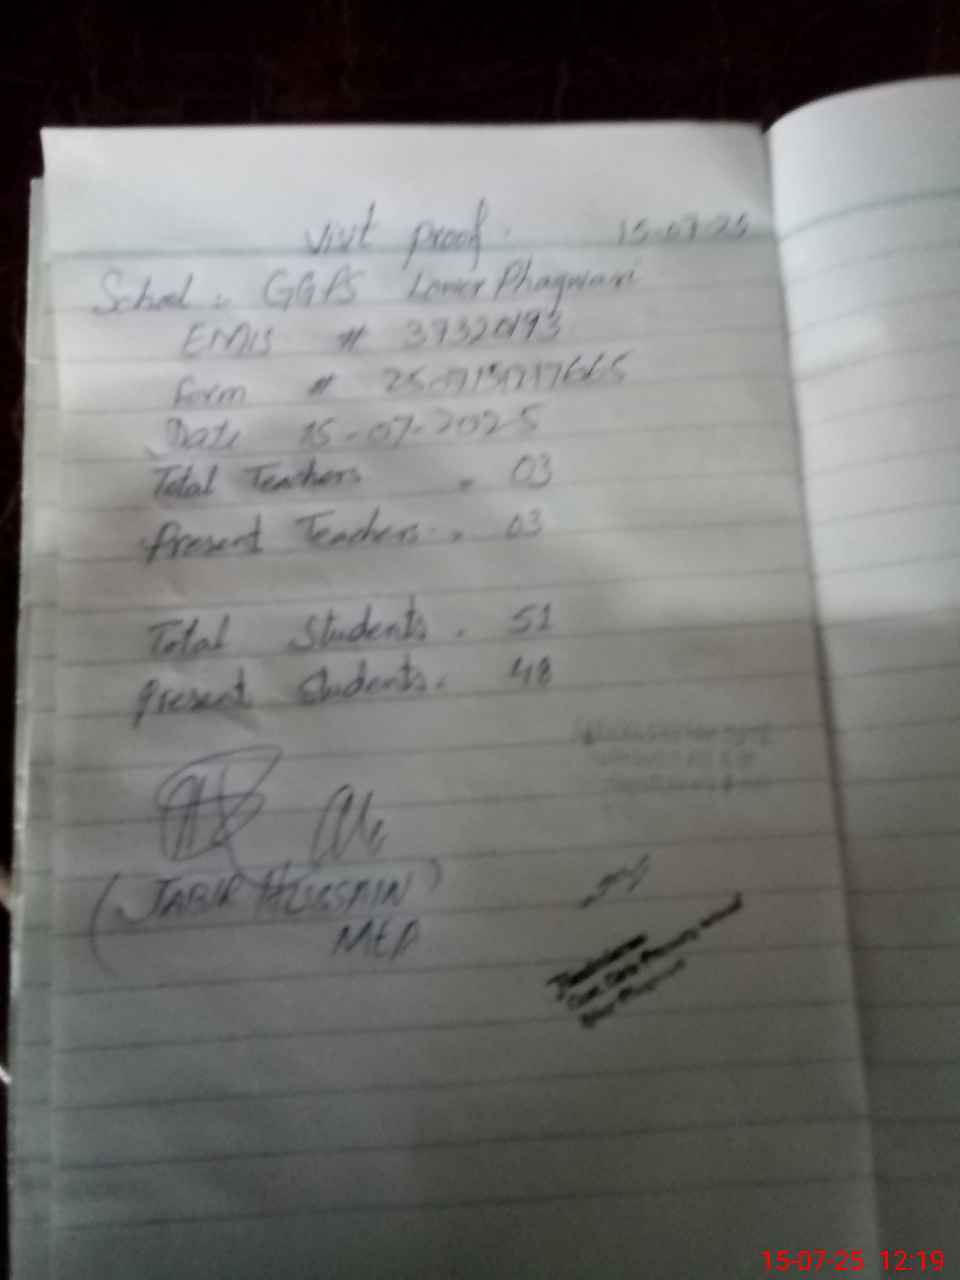 Visit proof. 15-07-25
School: GGPS Lower Phagwari
EMIS # 37320193
Form #
Date 15-07-2025
Total Teachers = 03
Present Teachers = 03
Total Students = 51
Present Students = 48
(JABIR HUSSAIN)
MEA
15-07-25 12:19